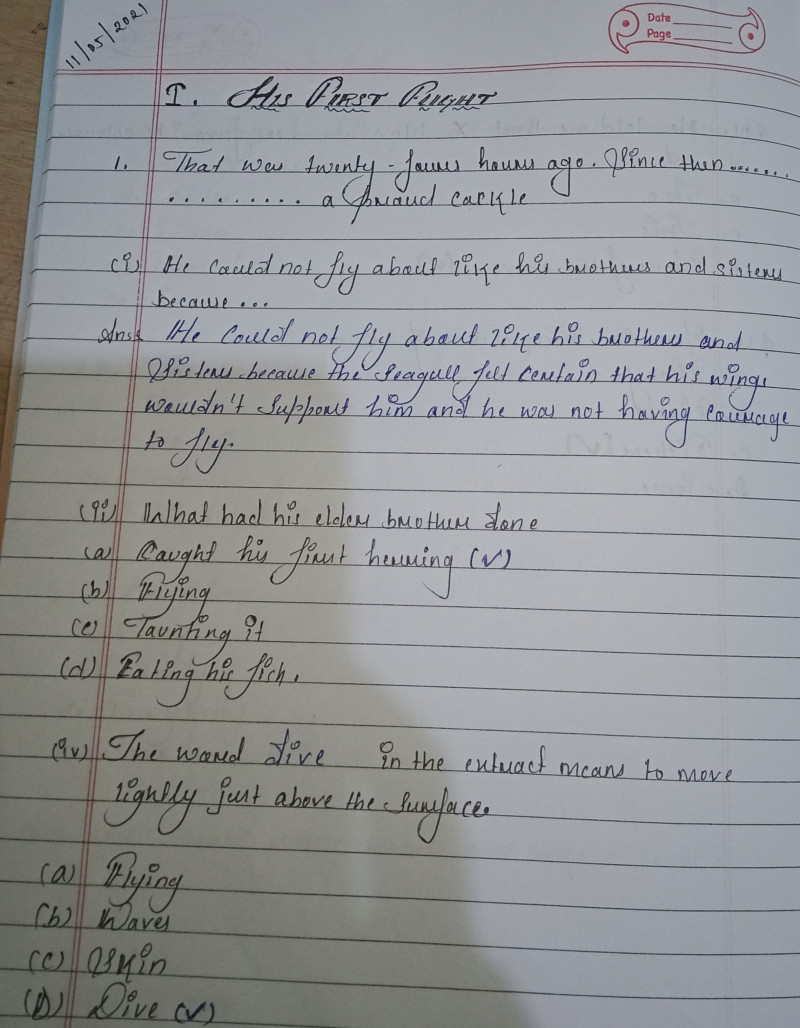 11/05/2021
Date
Page
I. His First Flight
1. That was twenty-four hours ago. Since then.......
.......... a proud cackle
(i) He could not fly about like his brothers and sisters
because...
Ans:- He could not fly about like his brothers and
Sisters because the seagull felt certain that his wings
wouldn't support him and he was not having courage
to fly.
(ii) What had his elder brother done
(a) Caught his first herring (✓)
(b) Flying
(c) Taunting it
(d) Eating his fish.
(iv) The word dive in the extract means to move
lightly just above the surface.
(a) Flying
(b) Waves
(c) Skin
(D) Dive (✓)